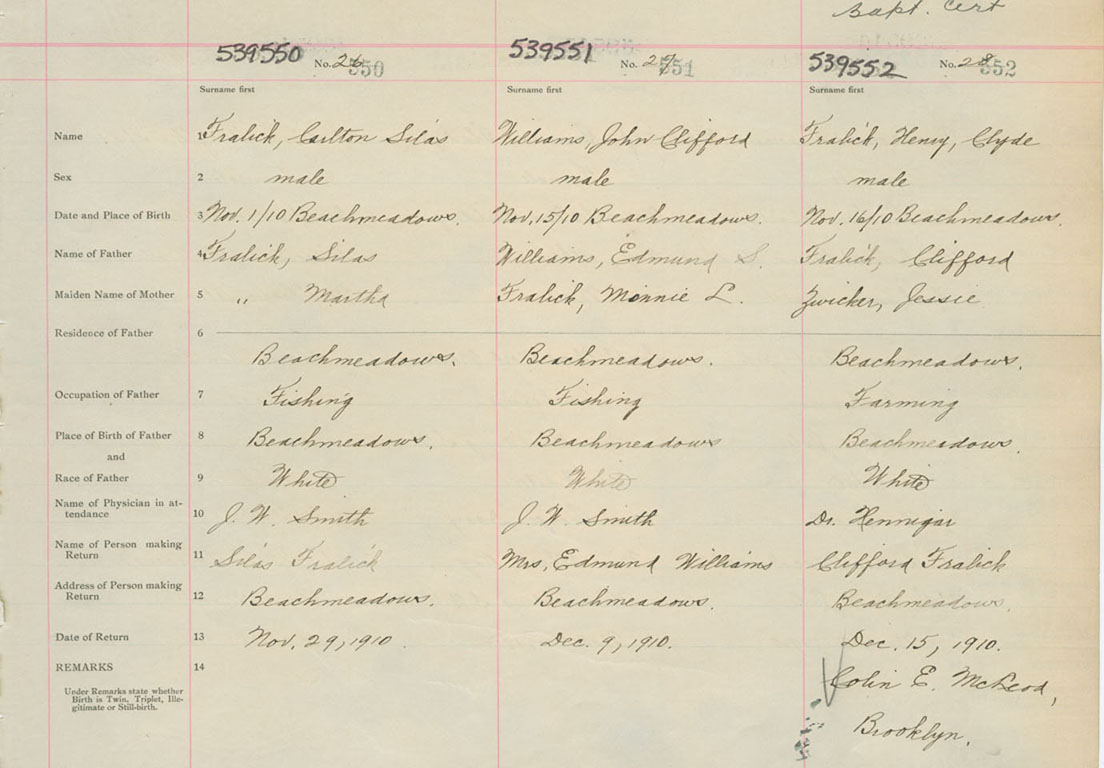 Bapt. Cert
539550 No. 26 550 539551 No. 27 551 539552 No. 28 552
Surname first Surname first Surname first
Name 1 Fralick, Carlton Silas Williams, John Clifford Fralick, Henry, Clyde
Sex 2 male male male
Date and Place of Birth 3 Nov. 1/10 Beachmeadows. Nov. 15/10 Beachmeadows. Nov. 16/10 Beachmeadows.
Name of Father 4 Fralick, Silas Williams, Edmund S. Fralick, Clifford
Maiden Name of Mother 5 " Martha Fralick, Minnie L. Zwicker, Jessie
Residence of Father 6
Beachmeadows. Beachmeadows. Beachmeadows.
Occupation of Father 7 Fishing Fishing Farming
Place of Birth of Father 8 Beachmeadows. Beachmeadows Beachmeadows.
and
Race of Father 9 White White White
Name of Physician in at-
tendance 10 J. W. Smith J. W. Smith Dr. Hennigar
Name of Person making
Return 11 Silas Fralick Mrs, Edmund Williams Clifford Fralick
Address of Person making
Return 12 Beachmeadows. Beachmeadows. Beachmeadows.
Date of Return 13 Nov. 29, 1910. Dec. 9, 1910. Dec. 15, 1910.
REMARKS 14 Colin E. McLeod,
Under Remarks state whether
Birth is Twin, Triplet, Ille-
gitimate or Still-birth.
Brooklyn.